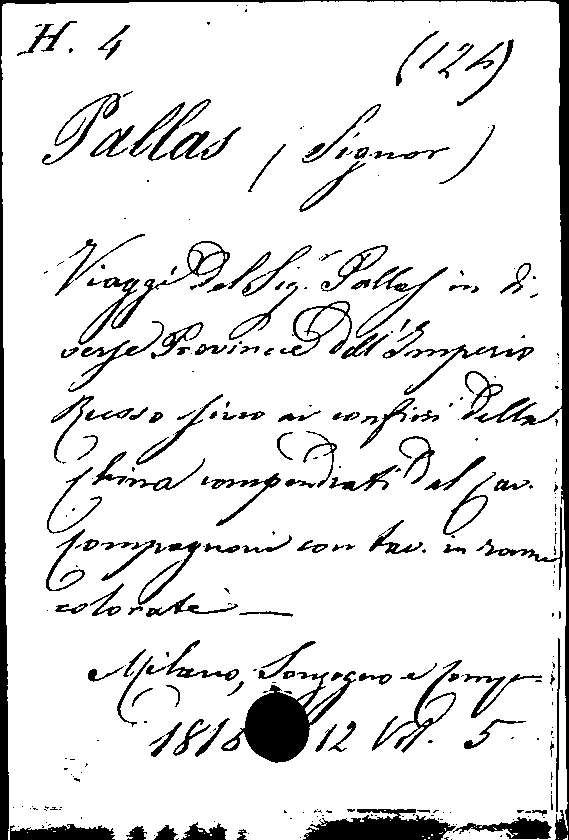 H. 4 (124)
Pallas (Signor)
Viaggi Del Sig.r Pallas in di,
verse Provincie dell'Imperio
Russo sino ai confini della
China compendiati Dal Cav.
Compagnoni con tav. in rame
colorate —
Milano, Sonzogno e Comp.
1816 12 Vol. 5